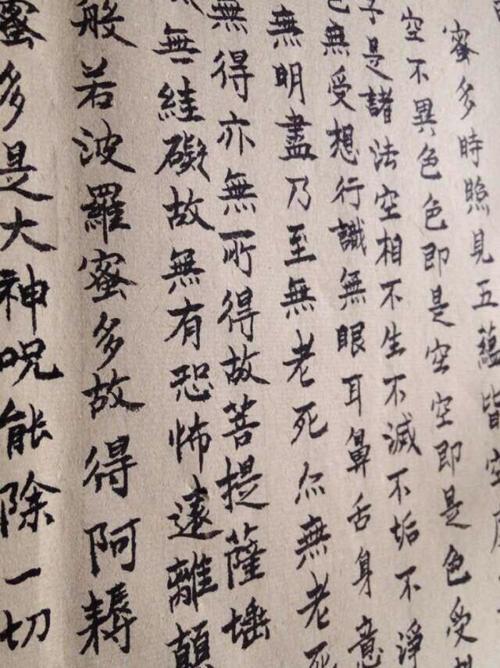 蜜多時照見五蘊皆空
空不異色色即是空空即是色受
子是諸法空相不生不滅不垢不淨
色無受想行識無眼耳鼻舌身意
無明盡乃至無老死亦無老死
無得亦無所得故菩提薩埵
無絓礙故無有恐怖遠離顛
般若波羅蜜多故得阿耨
蜜多是大神呪能除一切